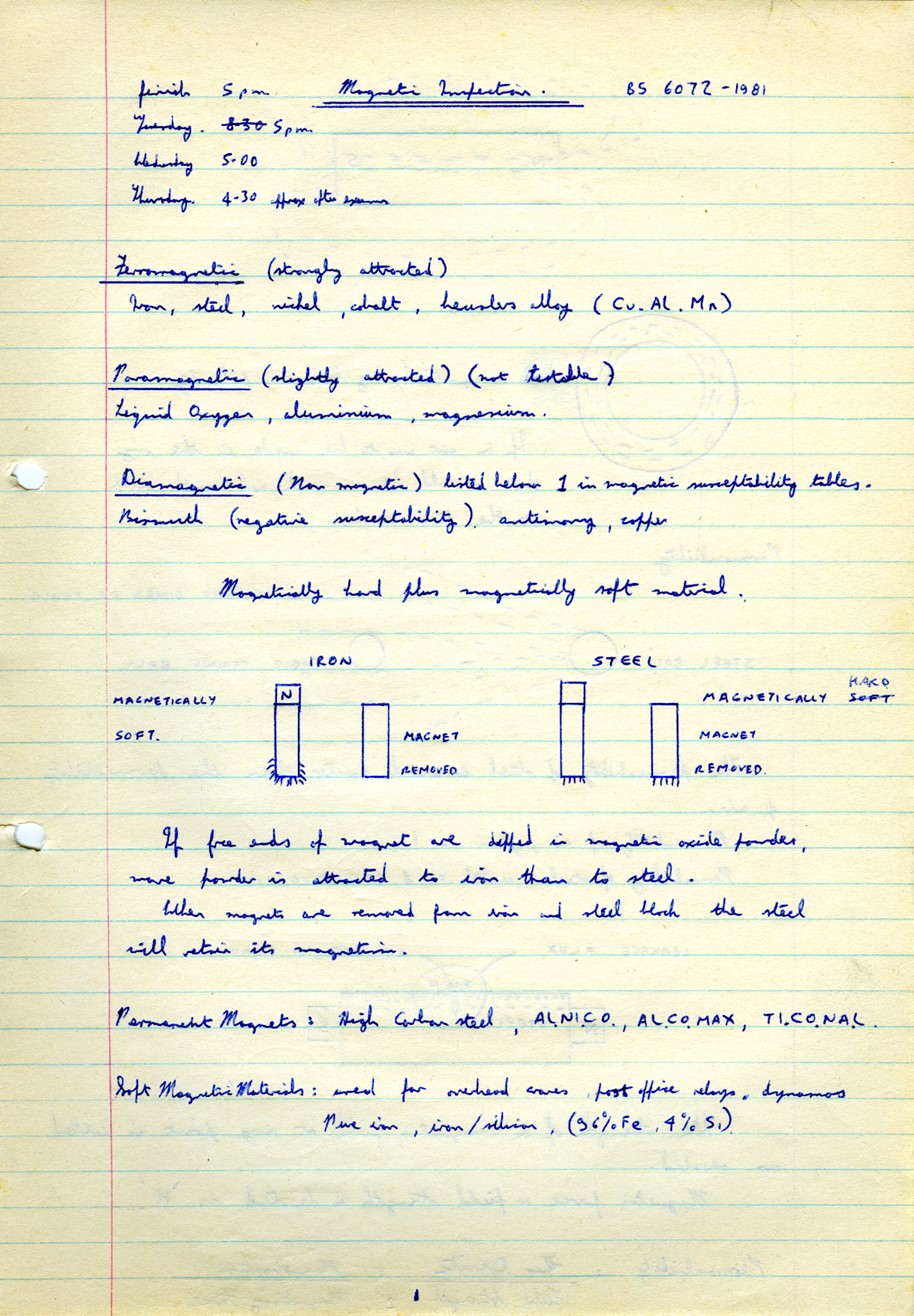 finish 5pm. Magnetic Inspection. BS 6072-1981
Tuesday. 8-30 5pm.
Wednesday 5-00
Thursday. 4-30 approx after exams
Ferromagnetic (strongly attracted)
Iron, steel, nickel, cobalt, heuslers alloy (Cu. Al. Mn)
Paramagnetic (slightly attracted) (not testable)
Liquid Oxygen, aluminium, magnesium.
Diamagnetic (Non magnetic) listed below 1 in magnetic susceptability tables.
Bismuth (negative susceptability). antimony, copper
Magnetically hard plus magnetically soft material.
IRON STEEL
HARD
MAGNETICALLY N MAGNETICALLY SOFT
SOFT. MAGNET MAGNET
REMOVED REMOVED.
If free ends of magnet are dipped in magnetic oxide powder,
more powder is attracted to iron than to steel.
When magnets are removed from iron and steel block the steel
will retain its magnetism.
Permanent Magnets: High Carbon steel, AL.NI.CO., AL.CO.MAX, TI.CO.NAL.
Soft Magnetic Materials: used for overhead cranes, post office relays, dynamos
Pure iron, iron/silicon, (96% Fe, 4% Si)
1